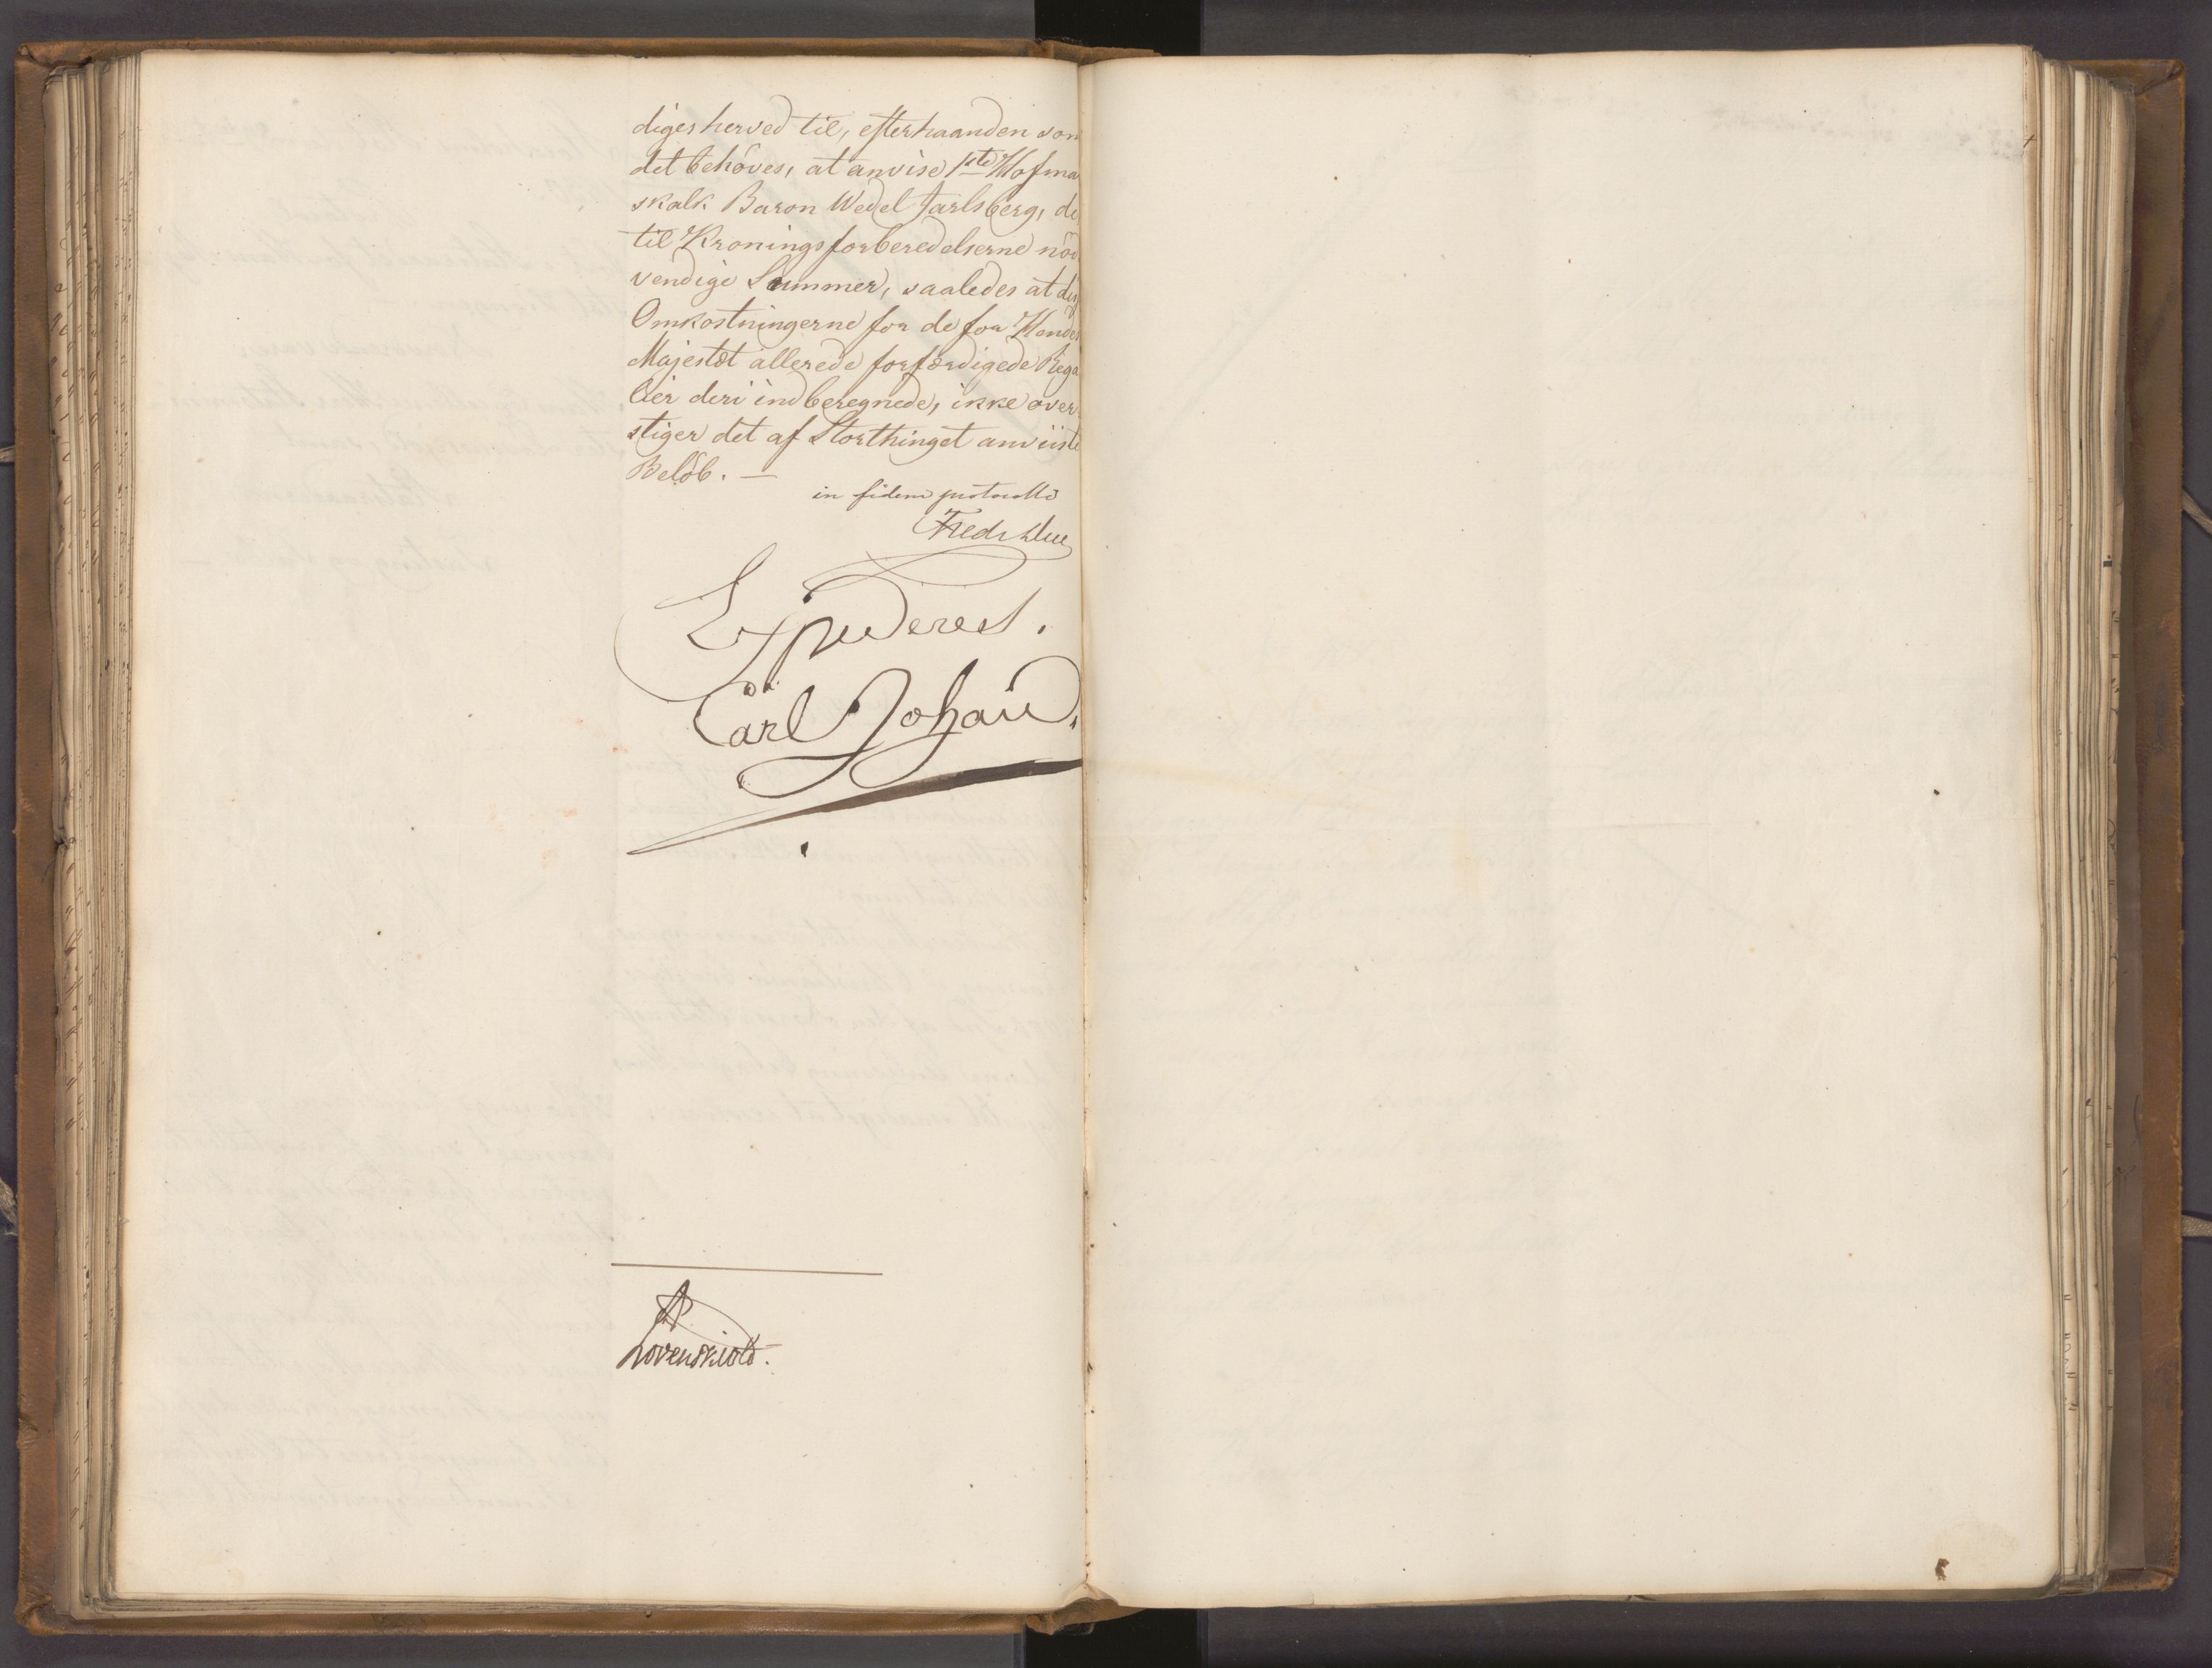 diges herved til, efterhaanden som
det behöves, at anvise 1ste Hofma
skalk Baron Wedel Jarlsberg, de
til Kroningsforberedelserne nöd
vendige Summer, saaledes at dis
Omkostningerne for de for Hendes
Majestæt allerede forfærdigede Rega
lier deri indberegnede, ikke over
stiger det af Storthinget anviiste
Belöb. —
in fidem protocolli
Fredr. Due
Expederes.
Carl Johan.
Løvenskiold.